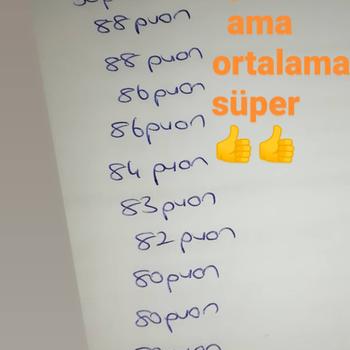 88 puan
ama
88 puan
ortalama
86 puan
süper
86 puan
84 puan
83 puan
82 puan
80 puan
80 puan